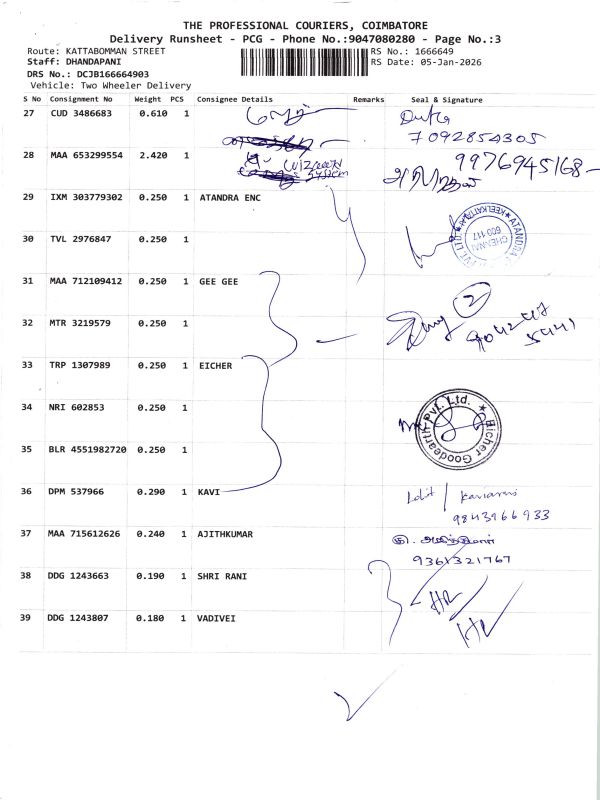 THE PROFESSIONAL COURIERS, COIMBATORE
Delivery Runsheet - PCG - Phone No.:9047080280 - Page No.:3
Route: KATTABOMMAN STREET
RS No.: 1666649
Staff: DHANDAPANI
RS Date: 05-Jan-2026
DRS No.: DCJB166664903
Vehicle: Two Wheeler Delivery
S No Consignment No Weight PCS Consignee Details Remarks Seal & Signature
27 CUD 3486683 0.610 1
7092854305
28 MAA 653299554 2.420 1
9976945168
29 IXM 303779302 0.250 1 ATANDRA ENC
ATANDRA PVT LTD KEELKATTALAI
CHENNAI
600 117
30 TVL 2976847 0.250 1
31 MAA 712109412 0.250 1 GEE GEE
2
32 MTR 3219579 0.250 1
33 TRP 1307989 0.250 1 EICHER
34 NRI 602853 0.250 1
Eicher Goodearth Pvt. Ltd.
35 BLR 4551982720 0.250 1
36 DPM 537966 0.290 1 KAVI
9843966933
37 MAA 715612626 0.240 1 AJITHKUMAR
9361321767
38 DDG 1243663 0.190 1 SHRI RANI
39 DDG 1243807 0.180 1 VADIVEI